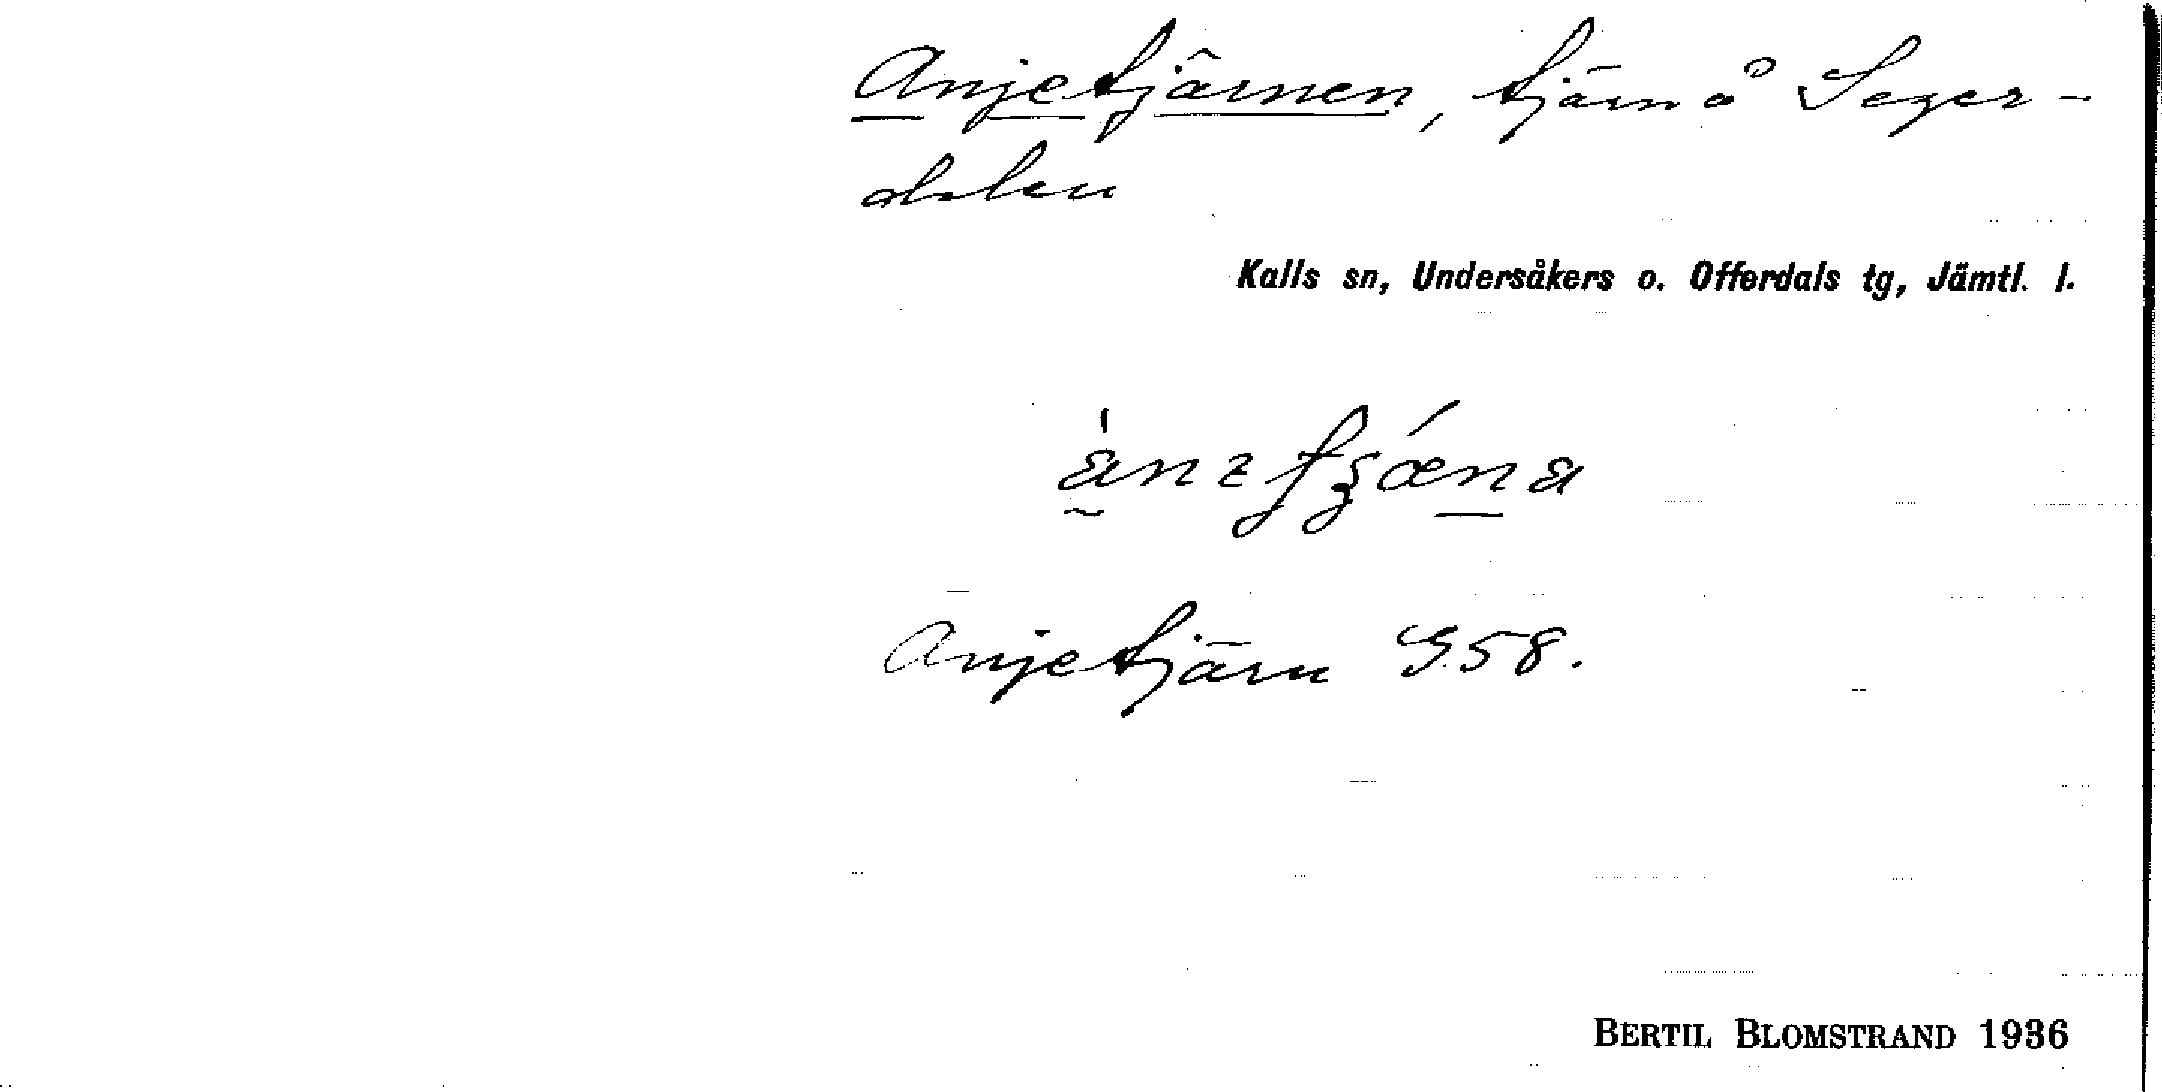 Anjetjärnen, tjärn å Seger-
dalen
Kalls sn, Undersåkers o. Offerdals tg, Jämtl. l.
Anjetjärn G.58.
BERTIL BLOMSTRAND 1936